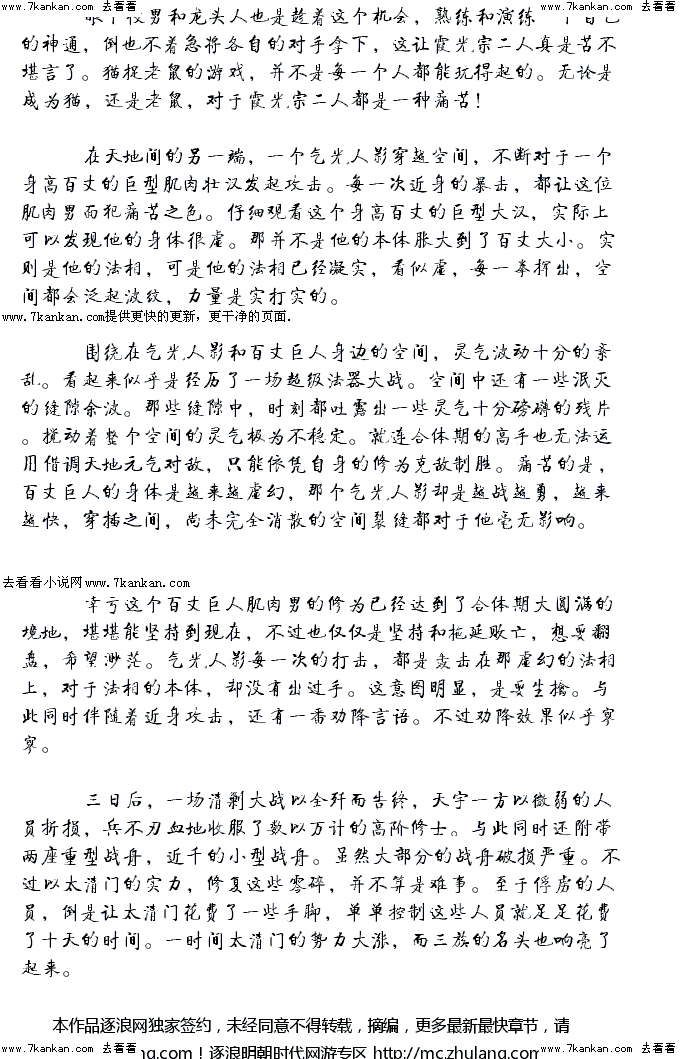 去看看 www.7kankan.com 去看看 www.7kankan.com 去看看 www.7kankan.com 去看看
男和龙头人也是趁着这个机会，熟练和演练
的神通，倒也不着急将各自的对手拿下，这让霞光宗二人真是苦不
堪言了。猫捉老鼠的游戏，并不是每一个人都能玩得起的。无论是
成为猫，还是老鼠，对于霞光宗二人都是一种痛苦！
在天地间的另一端，一个气光人影穿越空间，不断对于一个
身高百丈的巨型肌肉壮汉发起攻击。每一次近身的暴击，都让这位
肌肉男面犯痛苦之色。仔细观看这个身高百丈的巨型大汉，实际上
可以发现他的身体很虚。那并不是他的本体胀大到了百丈大小。实
则是他的法相，可是他的法相已经凝实，看似虚，每一拳挥出，空
间都会泛起波纹，力量是实打实的。
www.7kankan.com提供更快的更新，更干净的页面.
围绕在气光人影和百丈巨人身边的空间，灵气波动十分的紊
乱。看起来似乎是经历了一场超级法器大战。空间中还有一些泯灭
的缝隙余波。那些缝隙中，时刻都吐露出一些灵气十分磅礴的残片
。搅动着整个空间的灵气极为不稳定。就连合体期的高手也无法运
用借调天地元气对敌，只能依凭自身的修为克敌制胜。痛苦的是，
百丈巨人的身体是越来越虚幻，那个气光人影却是越战越勇，越来
越快，穿插之间，尚未完全消散的空间裂缝都对于他毫无影响。
去看看小说网www.7kankan.com
幸亏这个百丈巨人肌肉男的修为已经达到了合体期大圆满的
境地，堪堪能坚持到现在，不过也仅仅是坚持和拖延败亡，想要翻
盘，希望渺茫。气光人影每一次的打击，都是轰击在那虚幻的法相
上，对于法相的本体，却没有出过手。这意图明显，是要生擒。与
此同时伴随着近身攻击，还有一番劝降言语。不过劝降效果似乎寥
寥。
三日后，一场清剿大战以全歼而告终，天宇一方以微弱的人
员折损，兵不刃血地收服了数以万计的高阶修士。与此同时还附带
两座重型战舟，近千的小型战舟。虽然大部分的战舟破损严重。不
过以太清门的实力，修复这些零碎，并不算是难事。至于俘虏的人
员，倒是让太清门花费了一些手脚，单单控制这些人员就足足花费
了十天的时间。一时间太清门的势力大涨，而三族的名头也响亮了
起来。
本作品逐浪网独家签约，未经同意不得转载，摘编，更多最新最快章节，请
www.7kankan.com 去看看 www.7kankan.com 去看看 www.7kankan.com 去看看
ng.com！逐浪明朝时代网游专区 http://mc.zhulang.com